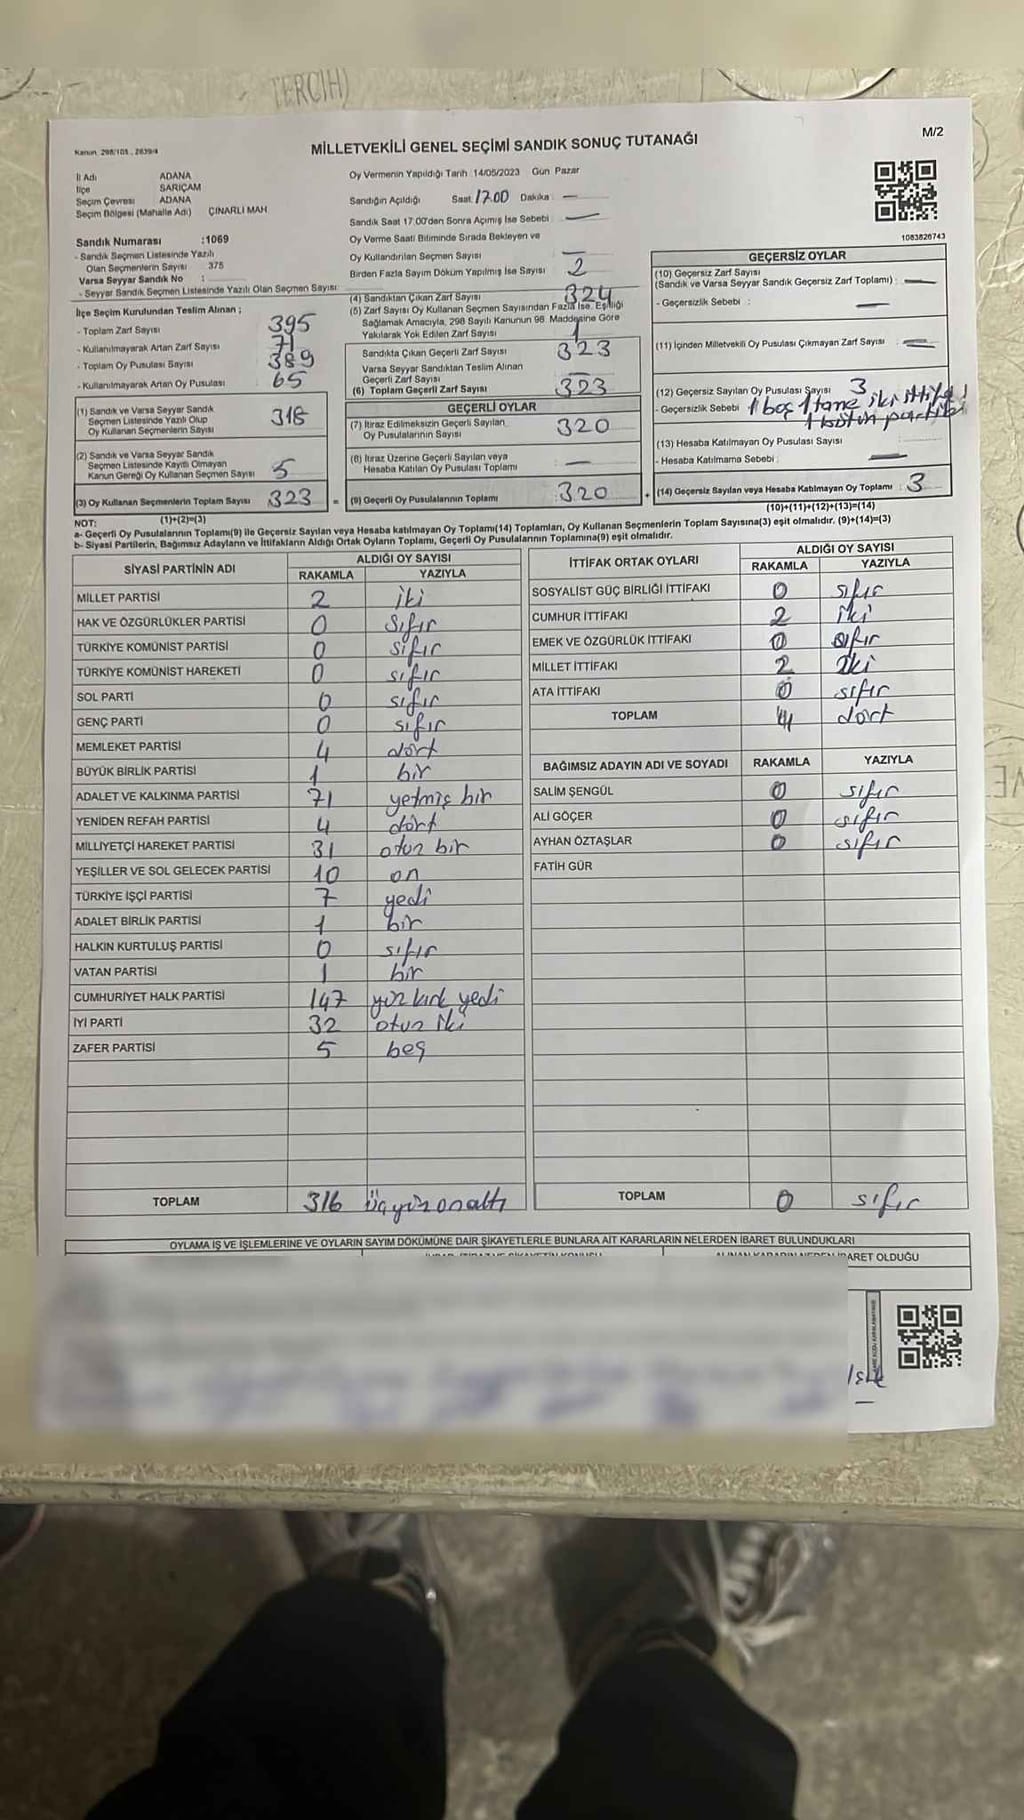 TERCİH)
M/2
Kanun 298/105 , 2839/4
MİLLETVEKİLİ GENEL SEÇİMİ SANDIK SONUÇ TUTANAĞI
İl Adı ADANA
İlçe SARIÇAM
Seçim Çevresi ADANA
Seçim Bölgesi (Mahalle Adı) ÇINARLI MAH
Sandık Numarası :1069
- Sandık Seçmen Listesinde Yazılı
Olan Seçmenlerin Sayısı 375
Varsa Seyyar Sandık No :
- Seyyar Sandık Seçmen Listesinde Yazılı Olan Seçmen Sayısı:
Oy Vermenin Yapıldığı Tarih 14/05/2023 Gün Pazar
Sandığın Açıldığı Saat: 17.00 Dakika : —
Sandık Saat 17:00'den Sonra Açımış İse Sebebi : —
Oy Verme Saati Bitiminde Sırada Bekleyen ve
Oy Kullandırılan Seçmen Sayısı —
Birden Fazla Sayım Döküm Yapılmış İse Sayısı 2
1083826743
İlçe Seçim Kurulundan Teslim Alınan ;
- Toplam Zarf Sayısı 395
- Kullanılmayarak Artan Zarf Sayısı 71
- Toplam Oy Pusulası Sayısı 389
- Kullanılmayarak Artan Oy Pusulası 65
(1) Sandık ve Varsa Seyyar Sandık
Seçmen Listesinde Yazılı Olup
Oy Kullanan Seçmenlerin Sayısı 318
(2) Sandık ve Varsa Seyyar Sandık
Seçmen Listesinde Kayıtlı Olmayan
Kanun Gereği Oy Kullanan Seçmen Sayısı 5
(3) Oy Kullanan Seçmenlerin Toplam Sayısı 323
(1)+(2)=(3)
(4) Sandıktan Çıkan Zarf Sayısı 324
(5) Zarf Sayısı Oy Kullanan Seçmen Sayısından Fazla İse, Eşitliği
Sağlamak Amacıyla, 298 Sayılı Kanunun 98. Maddesine Göre
Yakılarak Yok Edilen Zarf Sayısı 1
Sandıkta Çıkan Geçerli Zarf Sayısı 323
Varsa Seyyar Sandıktan Teslim Alınan
Geçerli Zarf Sayısı —
(6) Toplam Geçerli Zarf Sayısı 323
GEÇERLİ OYLAR
(7) İtiraz Edilmeksizin Geçerli Sayılan
Oy Pusulalarının Sayısı 320
(8) İtiraz Üzerine Geçerli Sayılan veya
Hesaba Katılan Oy Pusulası Toplamı —
= (9) Geçerli Oy Pusulalarının Toplamı 320
GEÇERSİZ OYLAR
(10) Geçersiz Zarf Sayısı
(Sandık ve Varsa Seyyar Sandık Geçersiz Zarf Toplamı) : —
- Geçersizlik Sebebi : —
(11) İçinden Milletvekili Oy Pusulası Çıkmayan Zarf Sayısı : —
(12) Geçersiz Sayılan Oy Pusulası Sayısı 3
- Geçersizlik Sebebi 1 boş 1 tane iki ittifak
1 bütün partiler
(13) Hesaba Katılmayan Oy Pusulası Sayısı
- Hesaba Katılmama Sebebi : —
+ (14) Geçersiz Sayılan veya Hesaba Katılmayan Oy Toplamı : 3
(10)+(11)+(12)+(13)=(14)
NOT:
a- Geçerli Oy Pusulalarının Toplamı(9) ile Geçersiz Sayılan veya Hesaba katılmayan Oy Toplamı(14) Toplamları, Oy Kullanan Seçmenlerin Toplam Sayısına(3) eşit olmalıdır. (9)+(14)=(3)
b- Siyasi Partilerin, Bağımsız Adayların ve İttifakların Aldığı Ortak Oyların Toplamı, Geçerli Oy Pusulalarının Toplamına(9) eşit olmalıdır.
SİYASİ PARTİNİN ADI ALDIĞI OY SAYISI
RAKAMLA YAZIYLA
MİLLET PARTİSİ 2 iki
HAK VE ÖZGÜRLÜKLER PARTİSİ 0 sıfır
TÜRKİYE KOMÜNİST PARTİSİ 0 sıfır
TÜRKİYE KOMÜNİST HAREKETİ 0 sıfır
SOL PARTİ 0 sıfır
GENÇ PARTİ 0 sıfır
MEMLEKET PARTİSİ 4 dört
BÜYÜK BİRLİK PARTİSİ 1 bir
ADALET VE KALKINMA PARTİSİ 71 yetmiş bir
YENİDEN REFAH PARTİSİ 4 dört
MİLLİYETÇİ HAREKET PARTİSİ 31 otuz bir
YEŞİLLER VE SOL GELECEK PARTİSİ 10 on
TÜRKİYE İŞÇİ PARTİSİ 7 yedi
ADALET BİRLİK PARTİSİ 1 bir
HALKIN KURTULUŞ PARTİSİ 0 sıfır
VATAN PARTİSİ 1 bir
CUMHURİYET HALK PARTİSİ 147 yüz kırk yedi
İYİ PARTİ 32 otuz iki
ZAFER PARTİSİ 5 beş
TOPLAM 316 üçyüz onaltı
İTTİFAK ORTAK OYLARI ALDIĞI OY SAYISI
RAKAMLA YAZIYLA
SOSYALİST GÜÇ BİRLİĞİ İTTİFAKI 0 sıfır
CUMHUR İTTİFAKI 2 iki
EMEK VE ÖZGÜRLÜK İTTİFAKI 0 sıfır
MİLLET İTTİFAKI 2 iki
ATA İTTİFAKI 0 sıfır
TOPLAM 4 dört
BAĞIMSIZ ADAYIN ADI VE SOYADI RAKAMLA YAZIYLA
SALİM ŞENGÜL 0 sıfır
ALİ GÖÇER 0 sıfır
AYHAN ÖZTAŞLAR 0 sıfır
FATİH GÜR
TOPLAM 0 sıfır
OYLAMA İŞ VE İŞLEMLERİNE VE OYLARIN SAYIM DÖKÜMÜNE DAİR ŞİKAYETLERLE BUNLARA AİT KARARLARIN NELERDEN İBARET BULUNDUKLARI
İBARET OLDUĞU